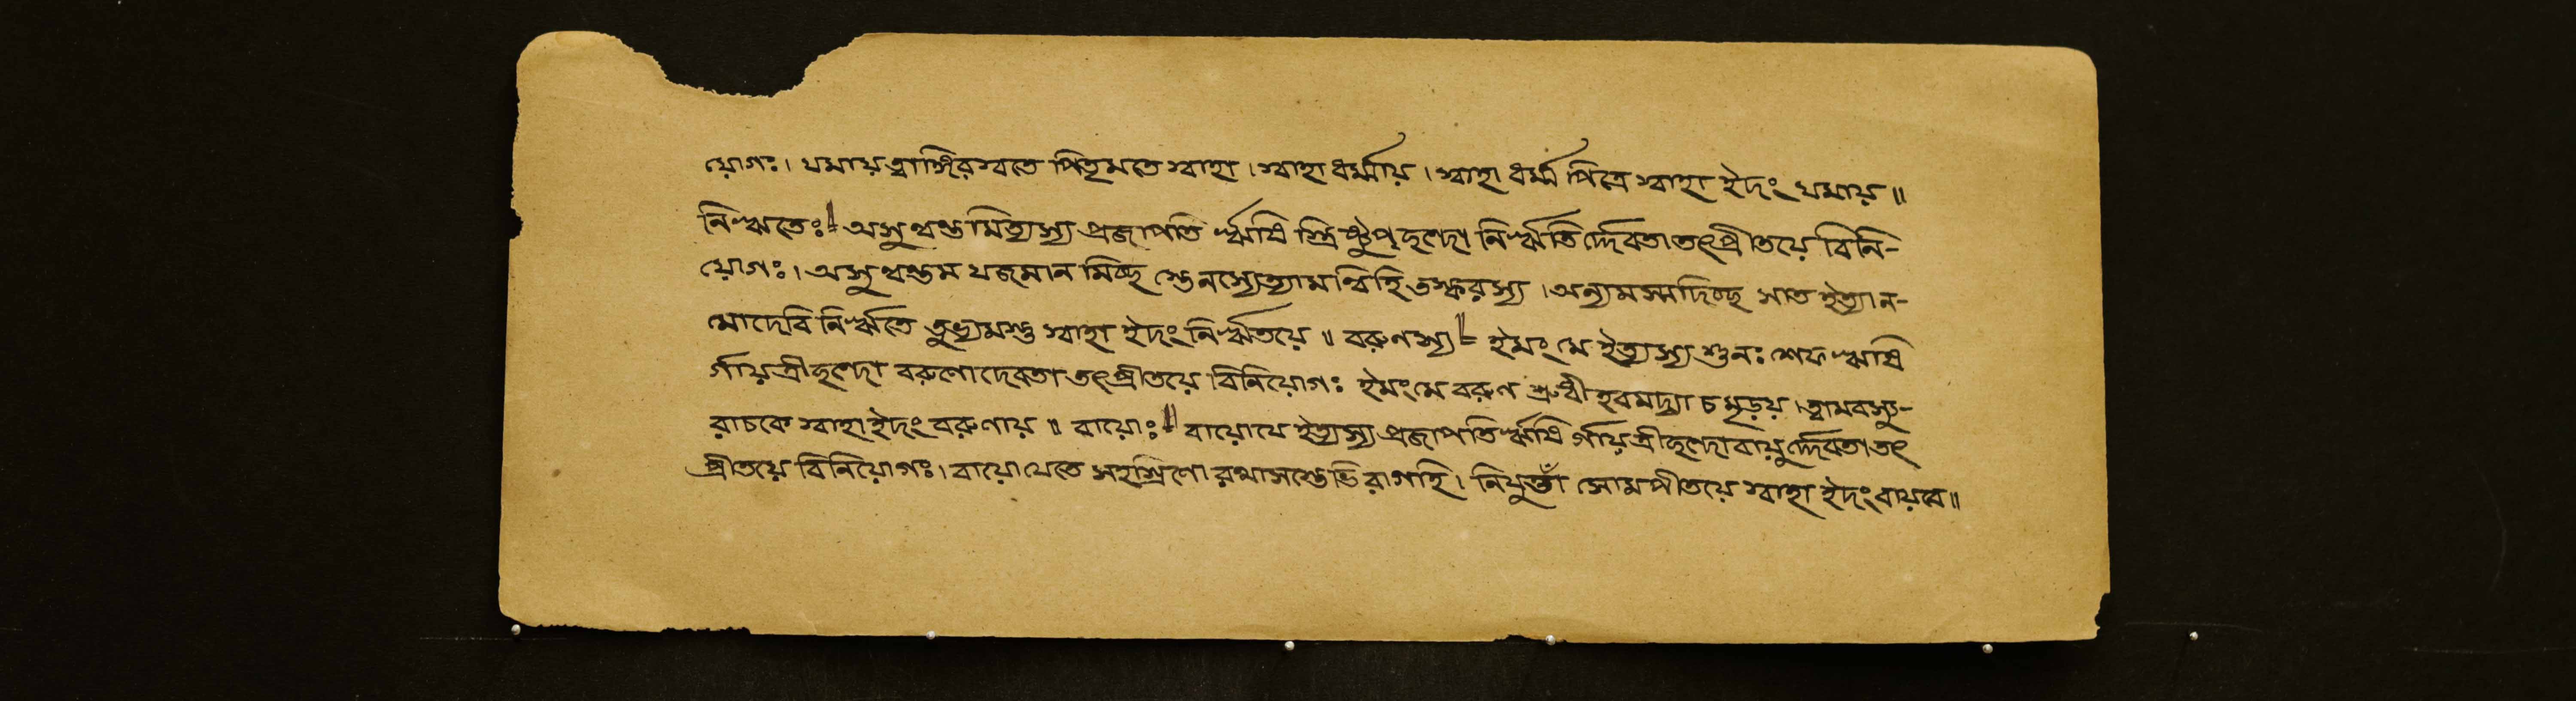 য়োগঃ। যমায় ত্বাঙ্গিরস্বতে পিতৃমতে স্বাহা। স্বাহা ধর্ম্মায়। স্বাহা ধর্ম্ম পিত্রে স্বাহা ইদং যমায়॥
নিঋতেঃ॥ অসুন্বন্তমিত্যস্য প্রজাপতি র্ঋষি স্ত্রিষ্টুপ্ছন্দো নির্ঋতি র্দ্দেবতা তৎপ্রীতয়ে বিনি-
য়োগঃ। অসুন্বন্তম যজমান মিচ্ছ স্তেনস্যেত্যামন্বিহি তস্করস্য। অন্যমস্মদিচ্ছ সাত ইত্যা ন-
মো দেবি নির্ঋতে তুভ্যমস্তু স্বাহা ইদং নির্ঋতয়ে॥ বরুণস্য॥ ইমং মে ইত্যস্য শুনঃ শেফ ঋষি
র্গায়ত্রীছন্দো বরুণো দেবতা তৎপ্রীতয়ে বিনিয়োগঃ ইমং মে বরুণ শ্রুধী হবমদ্যা চ মৃড়য়। ত্বামবস্যু-
রাচকে স্বাহা ইদং বরুণায়॥ বায়োঃ॥ বায়োযে ইত্যস্য প্রজাপতি র্ঋষি র্গায়ত্রীছন্দো বায়ু র্দ্দেবতা তৎ
প্রীতয়ে বিনিয়োগঃ। বায়ো যেতে সহস্রিণো রথাসস্তেভি রাগহি। নিযুত্বাঁ সোমপীতয়ে স্বাহা ইদং বায়বে॥